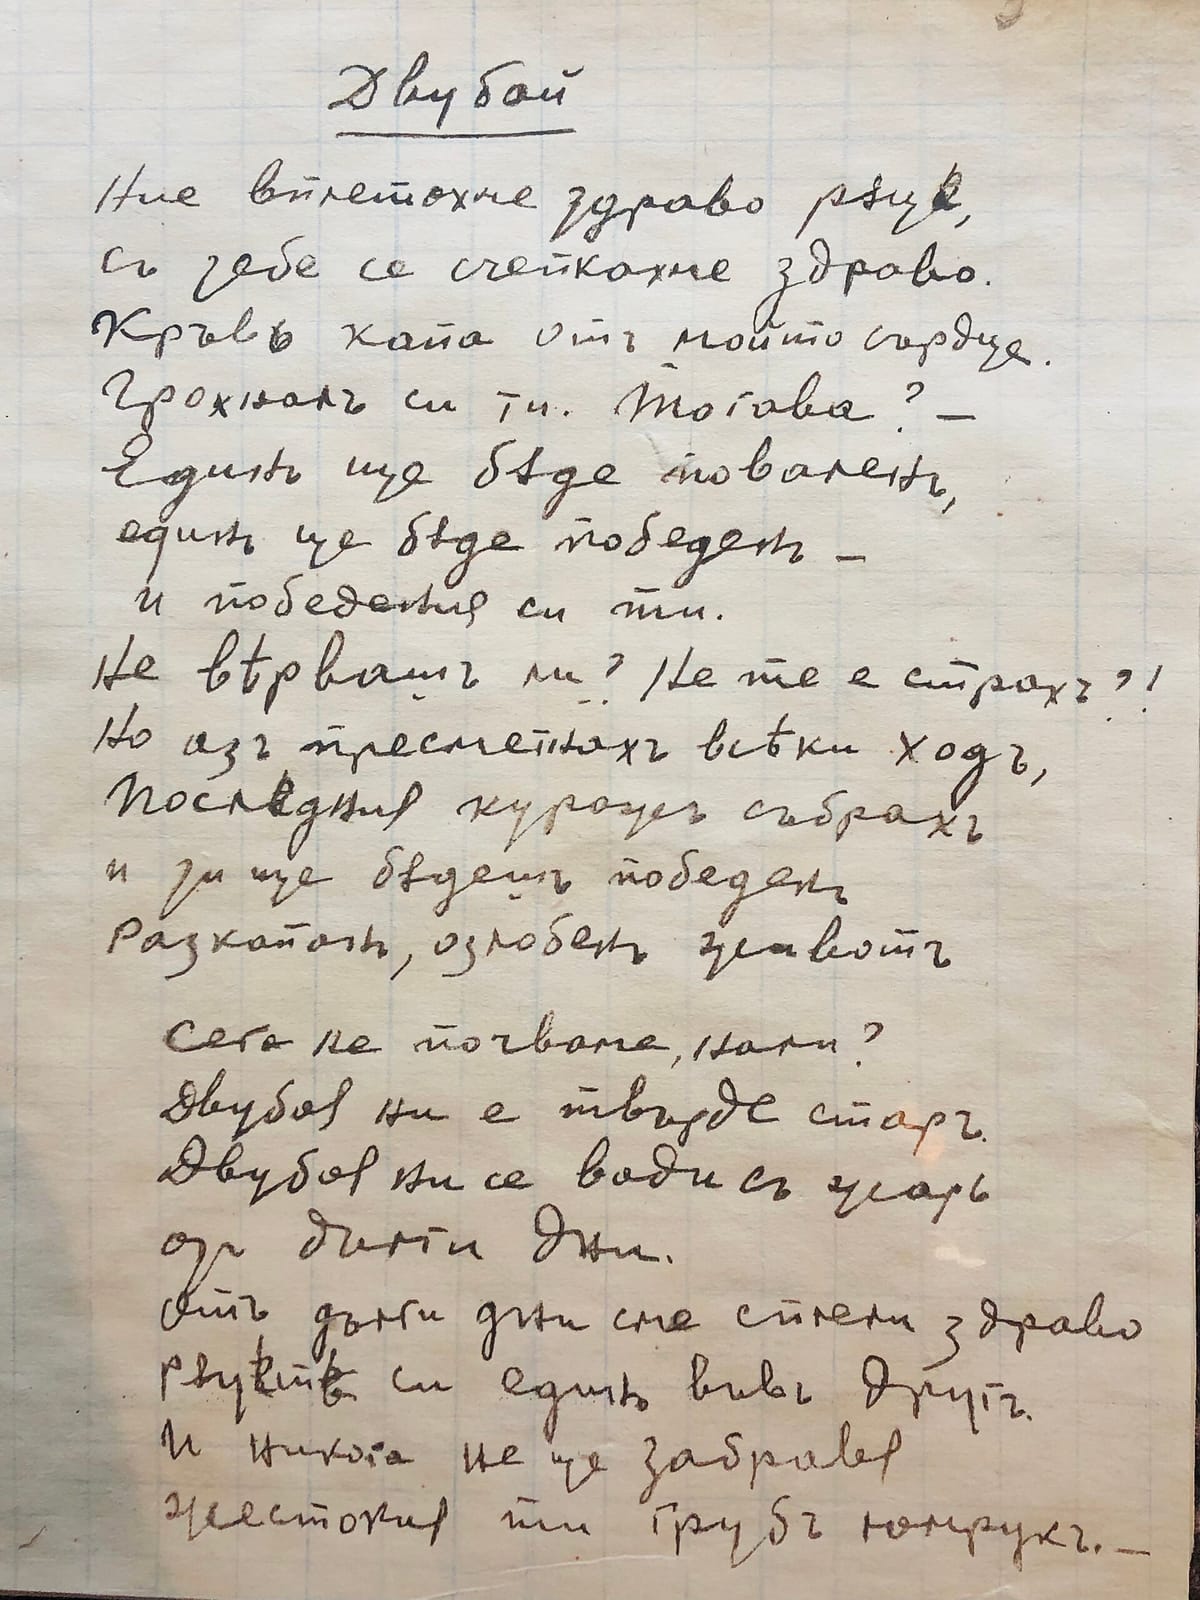 Двубой
Ние вплетохме здраво рѫцѣ,
съ тебе се счепкахме здраво.
Кръвь капа отъ мойто сърдце.
Грохналъ си ти. Тогава? –
Единъ ще бѫде поваленъ,
единъ ще бѫде победенъ –
и победения си ти.
Не вѣрвашъ ли? Не те е страхъ?!
Но азъ пресметнахъ всѣки ходъ,
Последния куражъ събрахъ
и ти ще бѫдешъ победенъ
Разкапанъ, озлобенъ животъ
Сега не почваме, нали?
Двубоя ни е твърде старъ.
Двубоя ни се води съ жарь
отъ дълги дни.
Отъ дълги дни сме сплели здраво
рѫцѣтѣ си единъ въвъ другъ.
И никога не ще забравя
жестокия ти грубъ юмрукъ. –